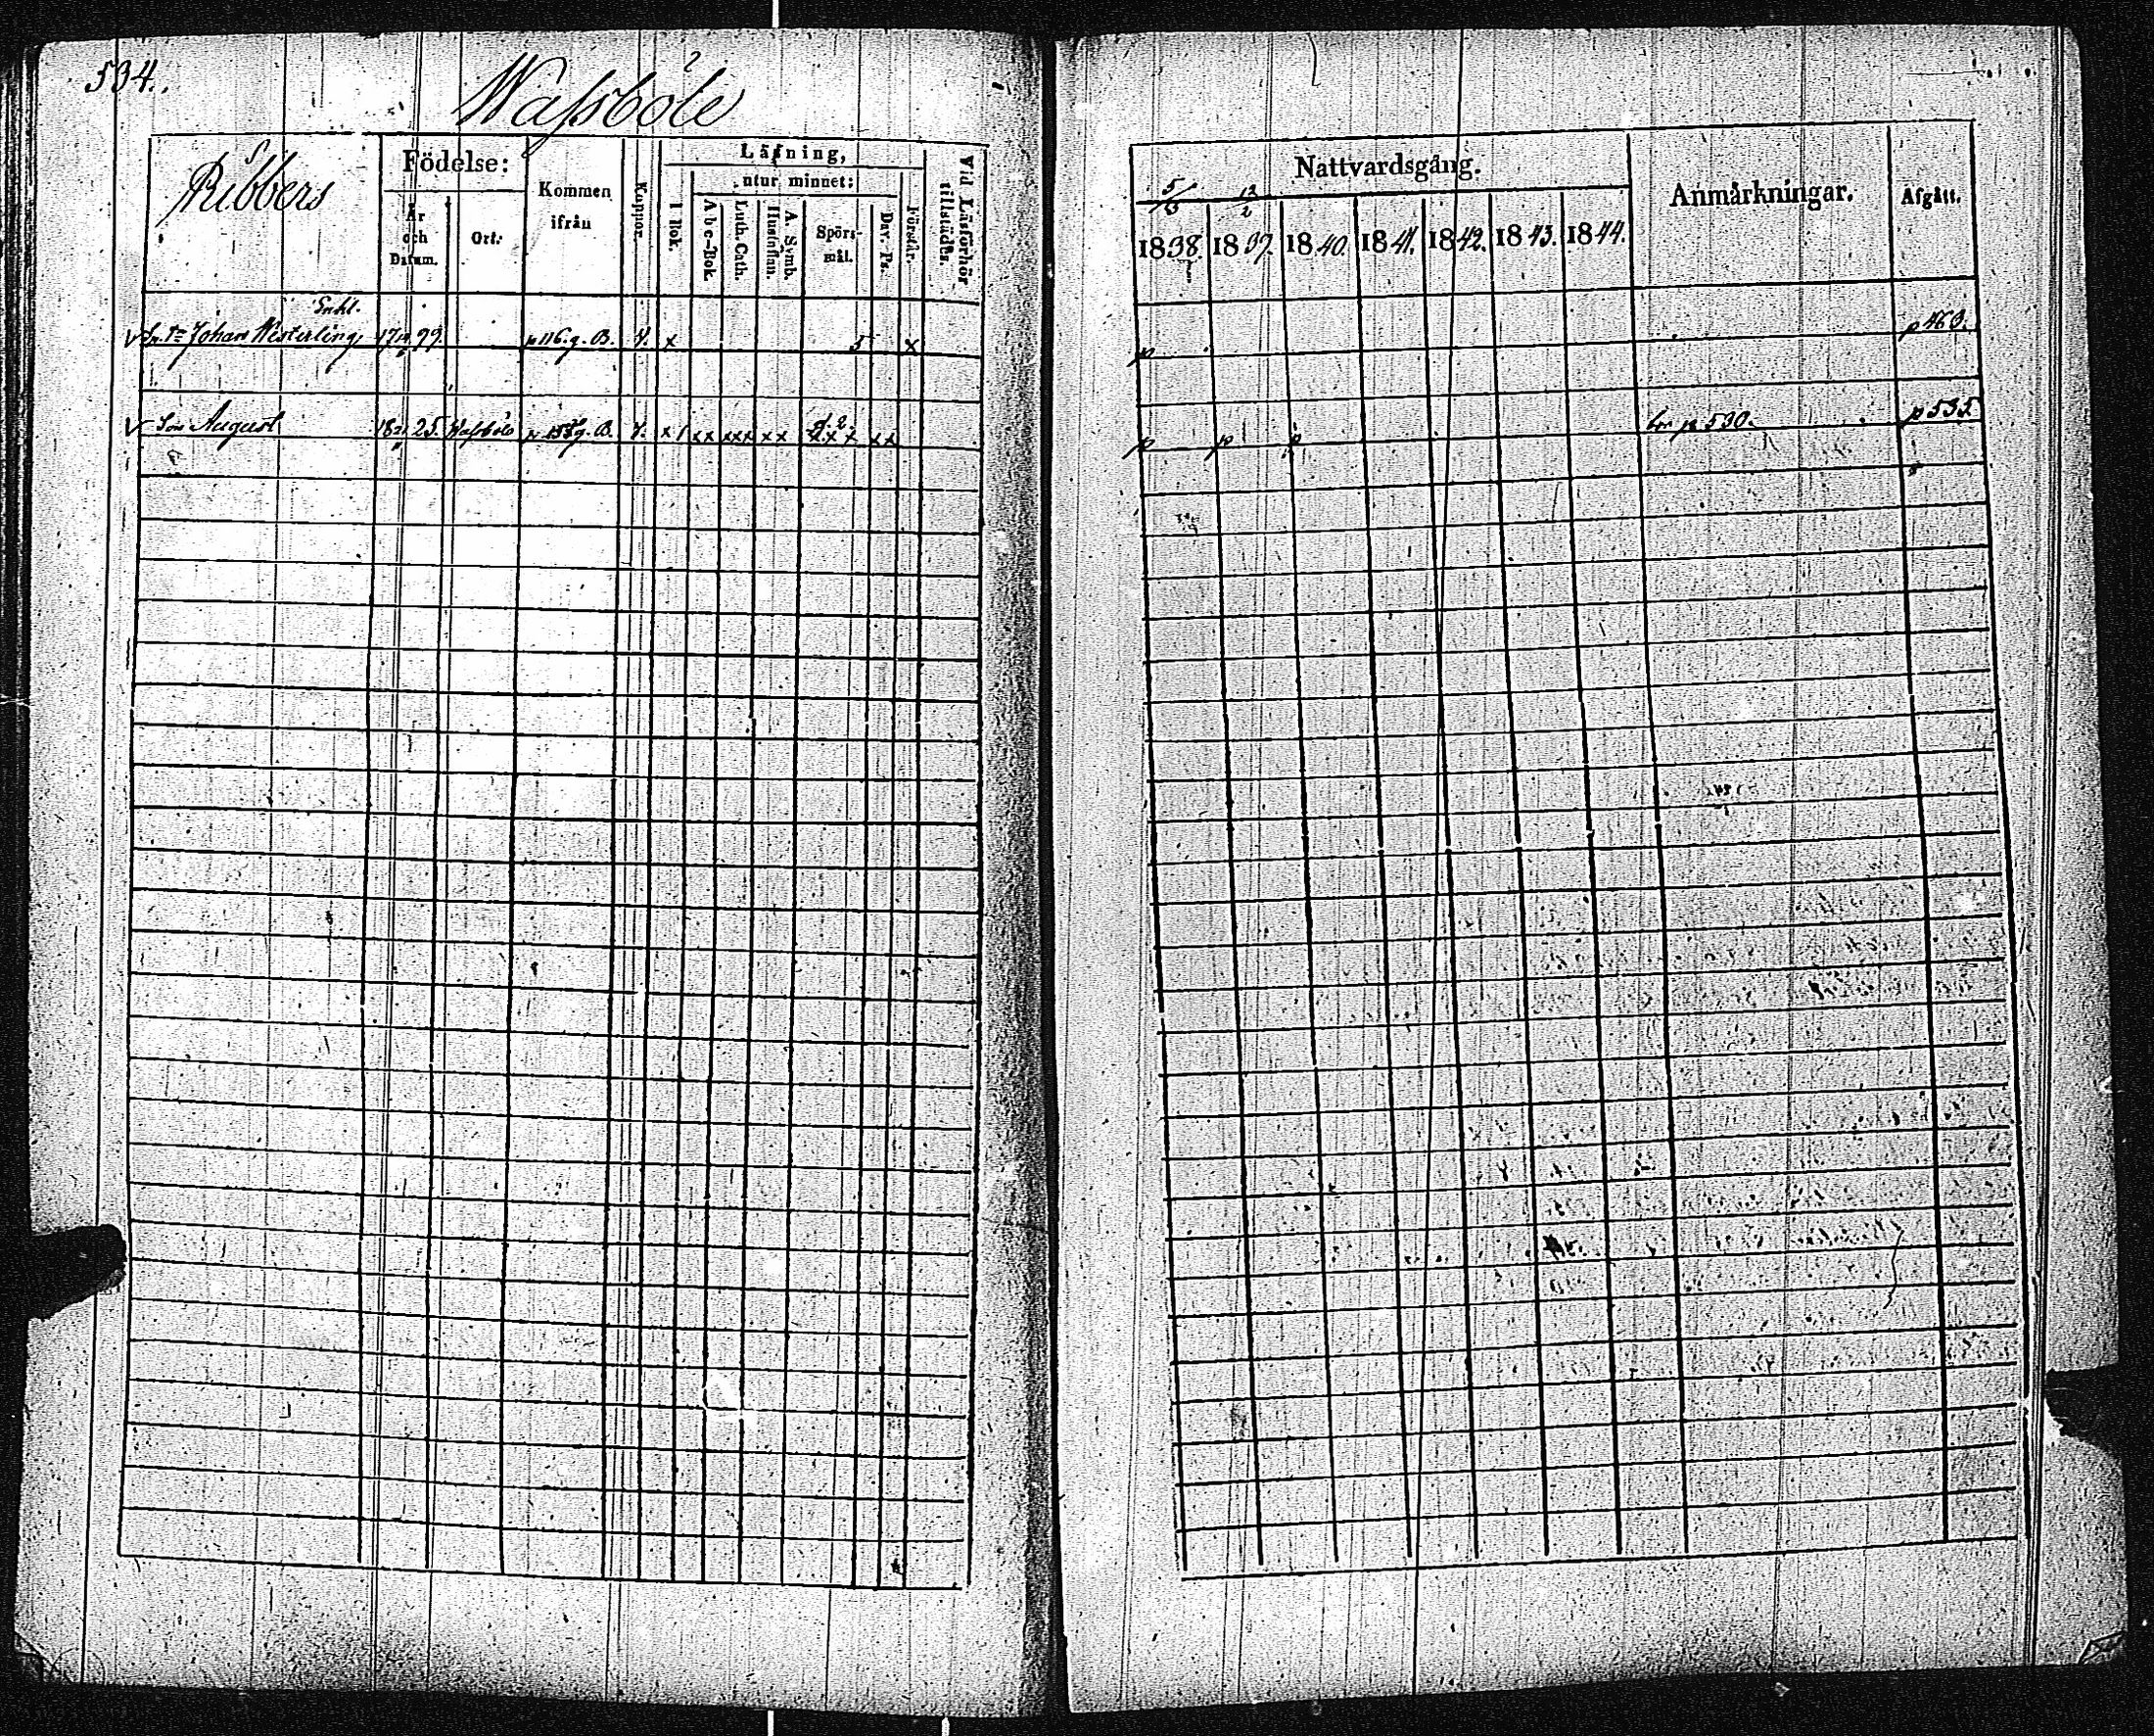 534.
Wassböle
Ribbers
Födelse:
År och Datum.
Ort.
Kommen ifrån
Koppor.
Läsning,
I Bok.
utur minnet:
A b c-Bok.
Luth. Cath.
A. Symb. Hustaflan.
Spörs-mål.
Dav. Ps.
Förstår.
Vid Läsförhör tillstädes.
Nattvardsgång.
5/6 12/2
1838. 1839. 1840. 1841. 1842. 1843. 1844.
Anmärkningar.
Afgått.
Enkl.
Johan Westerling, 17 99. p 116. g. B. 4. x 5 x p p 463.
Son August 18 25. Wassböle g. B. x xx xxx xx xxx xx p p p p 530. p 535.